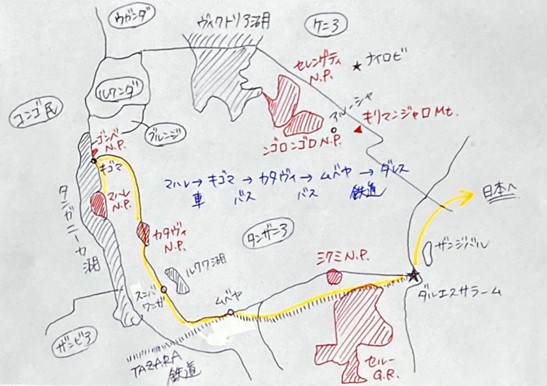 ウガンダ
ヴィクトリア湖
ケニア
セレンゲティ
N.P.
ナイロビ
ルワンダ
コンゴ民
アルーシャ
キリマンジャロMt.
ブルンジ
ンゴロンゴロN.P.
ゴンベ
N.P.
キゴマ
マハレ→キゴマ→カタヴィ→ムベヤ→ダレス
車
バス
バス
鉄道
マハレ
N.P.
日本へ
タンガニーカ湖
カタヴィ
N.P.
タンザニア
ザンジバル
ルクワ湖
ミクミN.P.
ダルエスサラーム
スンバ
ワンガ
ムベヤ
ザンビア
TAZARA
鉄道
セルー
G.R.